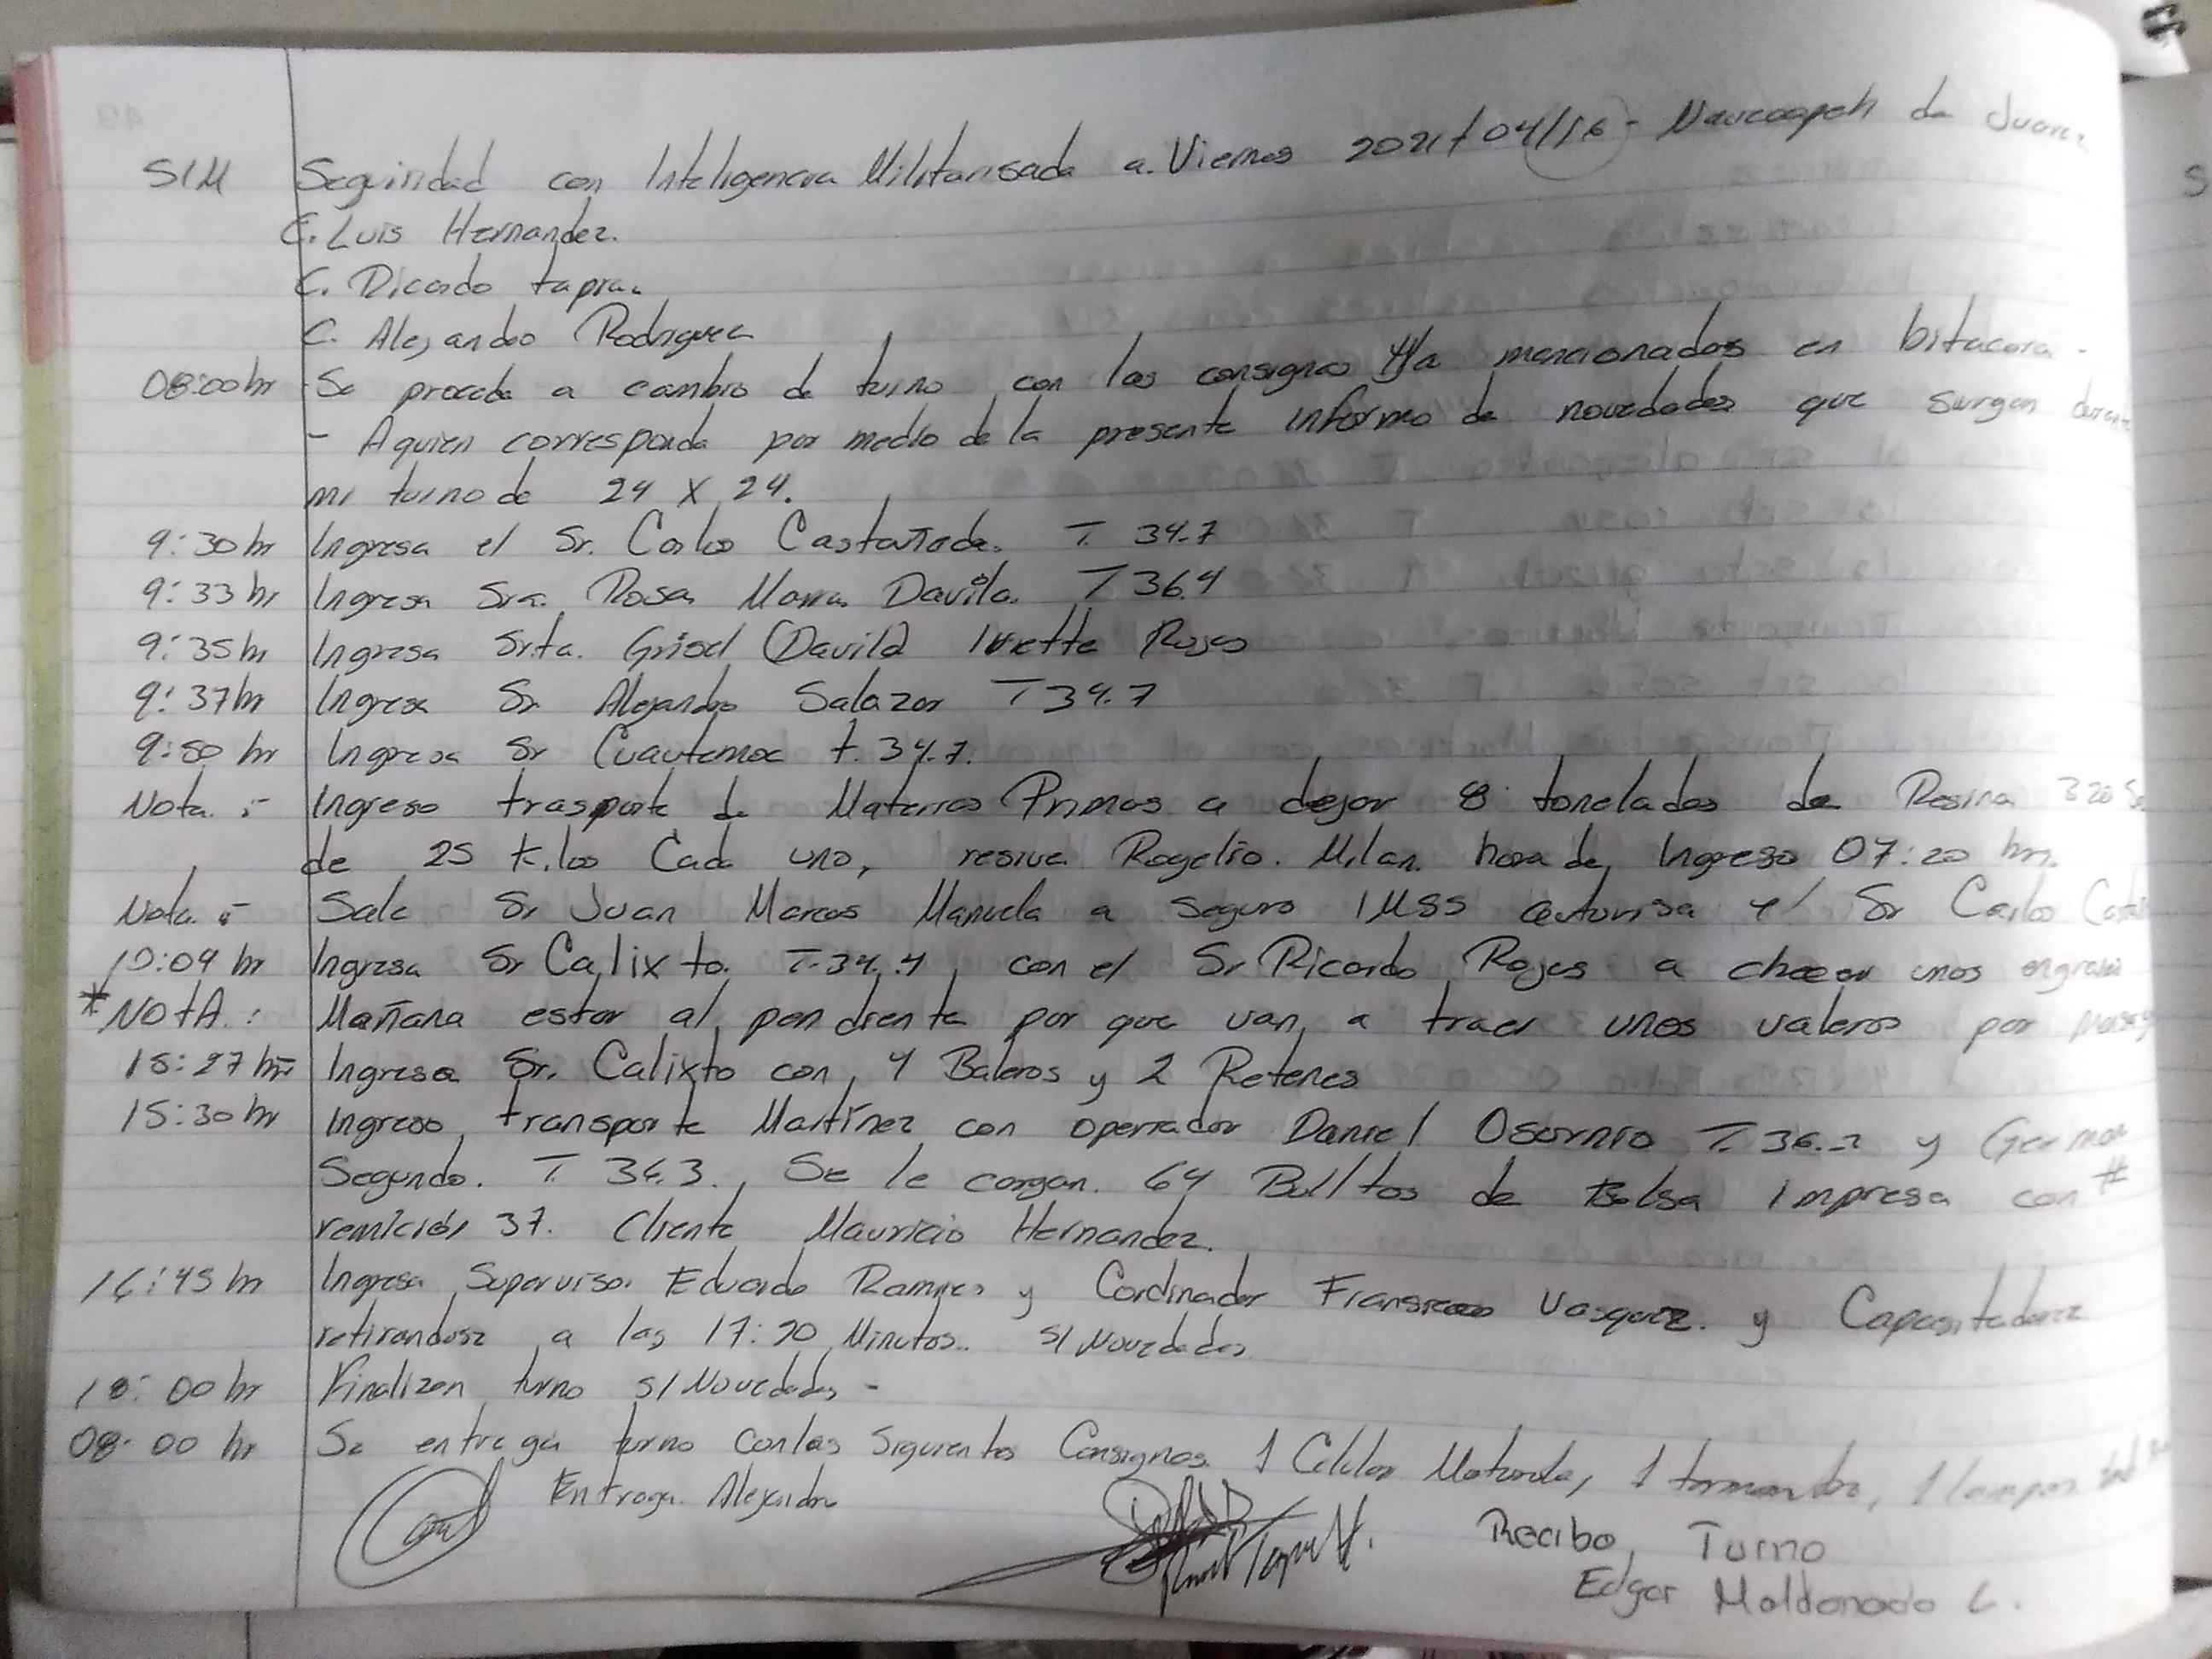 SIM Seguridad con Inteligencia Militarisada a. Viernes 2021/04/16 - Naucoapeh de Juarez
C. Luis Hernandez.
C. Ricardo tapia.
C. Alejandro Rodriguez
08:00 hr Se procede a cambio de turno con las consignas Ya mencionados en bitacora -
- Aquien corresponda por medio de la presente informo de novedades que surgen durante
mi turno de 24 X 24.
9:30 hr Ingresa el Sr. Carlos Castañada. T. 34.7
9:33 hr Ingresa Sra. Rosa Maria Davila. T 36.4
9:35 hr Ingresa Srta. Grisel (Davila) Ivette Rojas
9:37 hr Ingresa Sr. Alejandro Salazar T 34.7
9:50 hr Ingresa Sr Cuautemoc t. 34.7.
Nota :- Ingreso trasporte de Materias Primas a dejar 8 toneladas de Resina 320
de 25 kilos Cada uno, resive Rogelio. Milan. hora de Ingreso 07:20 hrs.
Nota :- Sale Sr Juan Marcos Manuela a Seguro IMSS autorisa el Sr Carlos
10:09 hr Ingresa Sr Calixto. T-34.4, con el Sr Ricardo Rojas a checar unos
*NOTA.: Mañana estar al pendiente por que van a traer unos valeros por
15:27 hr Ingresa Sr. Calixto con, 4 Baleros y 2 Retenes
15:30 hr Ingreso, transporte Martinez con operador Daniel Osornio T. 36.2 y German
Segundo. T. 36.3., Se le cargan. 64 Bulltos de Bolsa Impresa con #
remicion 37. Cliente Mauricio Hernandez.
16:45 hr Ingresa Supervisor Eduardo Ramires y Cordinador Fransisco Vasquez. y Capasitadora
retirandose a las 17:20 Minutos. S/Novedades
18:00 hr Finalizan turno S/Novedades -
08:00 hr Se entrega turno con las Siguientes Consignas. 1 Celular Motorola, 1 termometro, 1
Entrega. Alejandro
Recibo, Turno
Edgar Maldonado L.